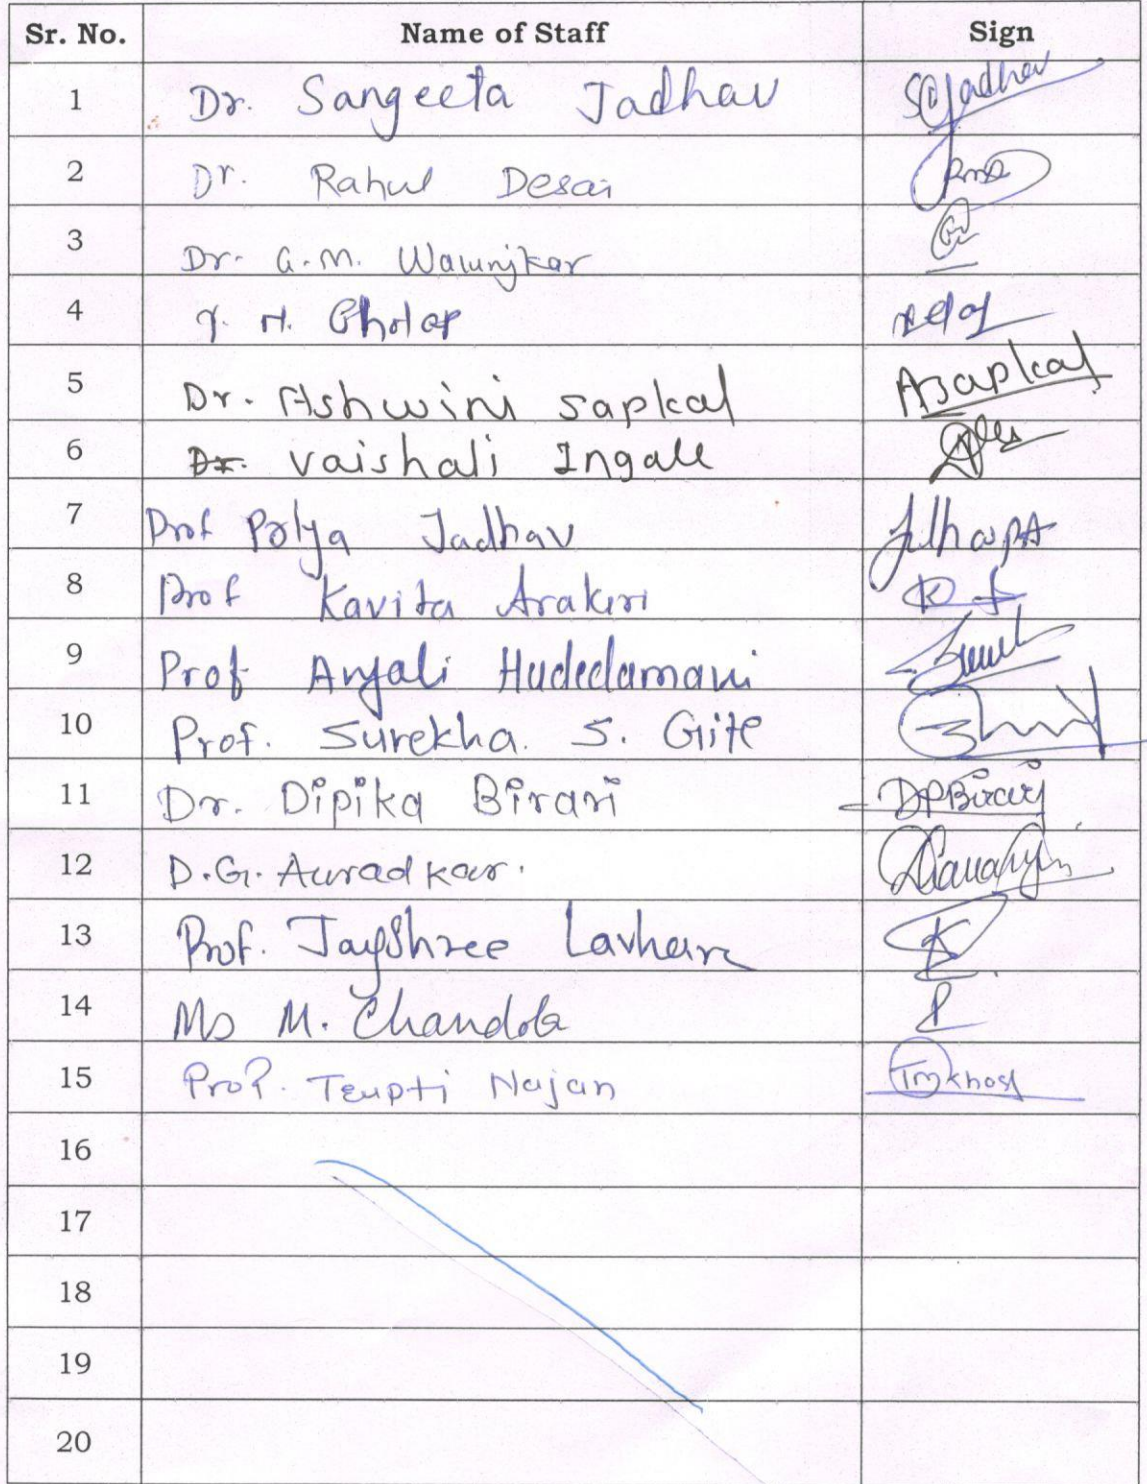 Sr. No. Name of Staff Sign
1 Dr. Sangeeta Jadhav SCJadhav
2 Dr. Rahul Desai
3 Dr. G.M. Walunjkar
4 Y. H. Gholap
5 Dr. Ashwini Sapkal Asapkal
6 Dr. Vaishali Ingale
7 Prof Poliya Jadhav
8 Prof Kavita Arakeri
9 Prof Anjali Hudedamani
10 Prof. Surekha. S. Gite
11 Dr. Dipika Birari DPBirari
12 D.G. Auradkar.
13 Prof. Jayshree Lavhare
14 Ms M. Chandola
15 Prof. Trupti Najan
16
17
18
19
20